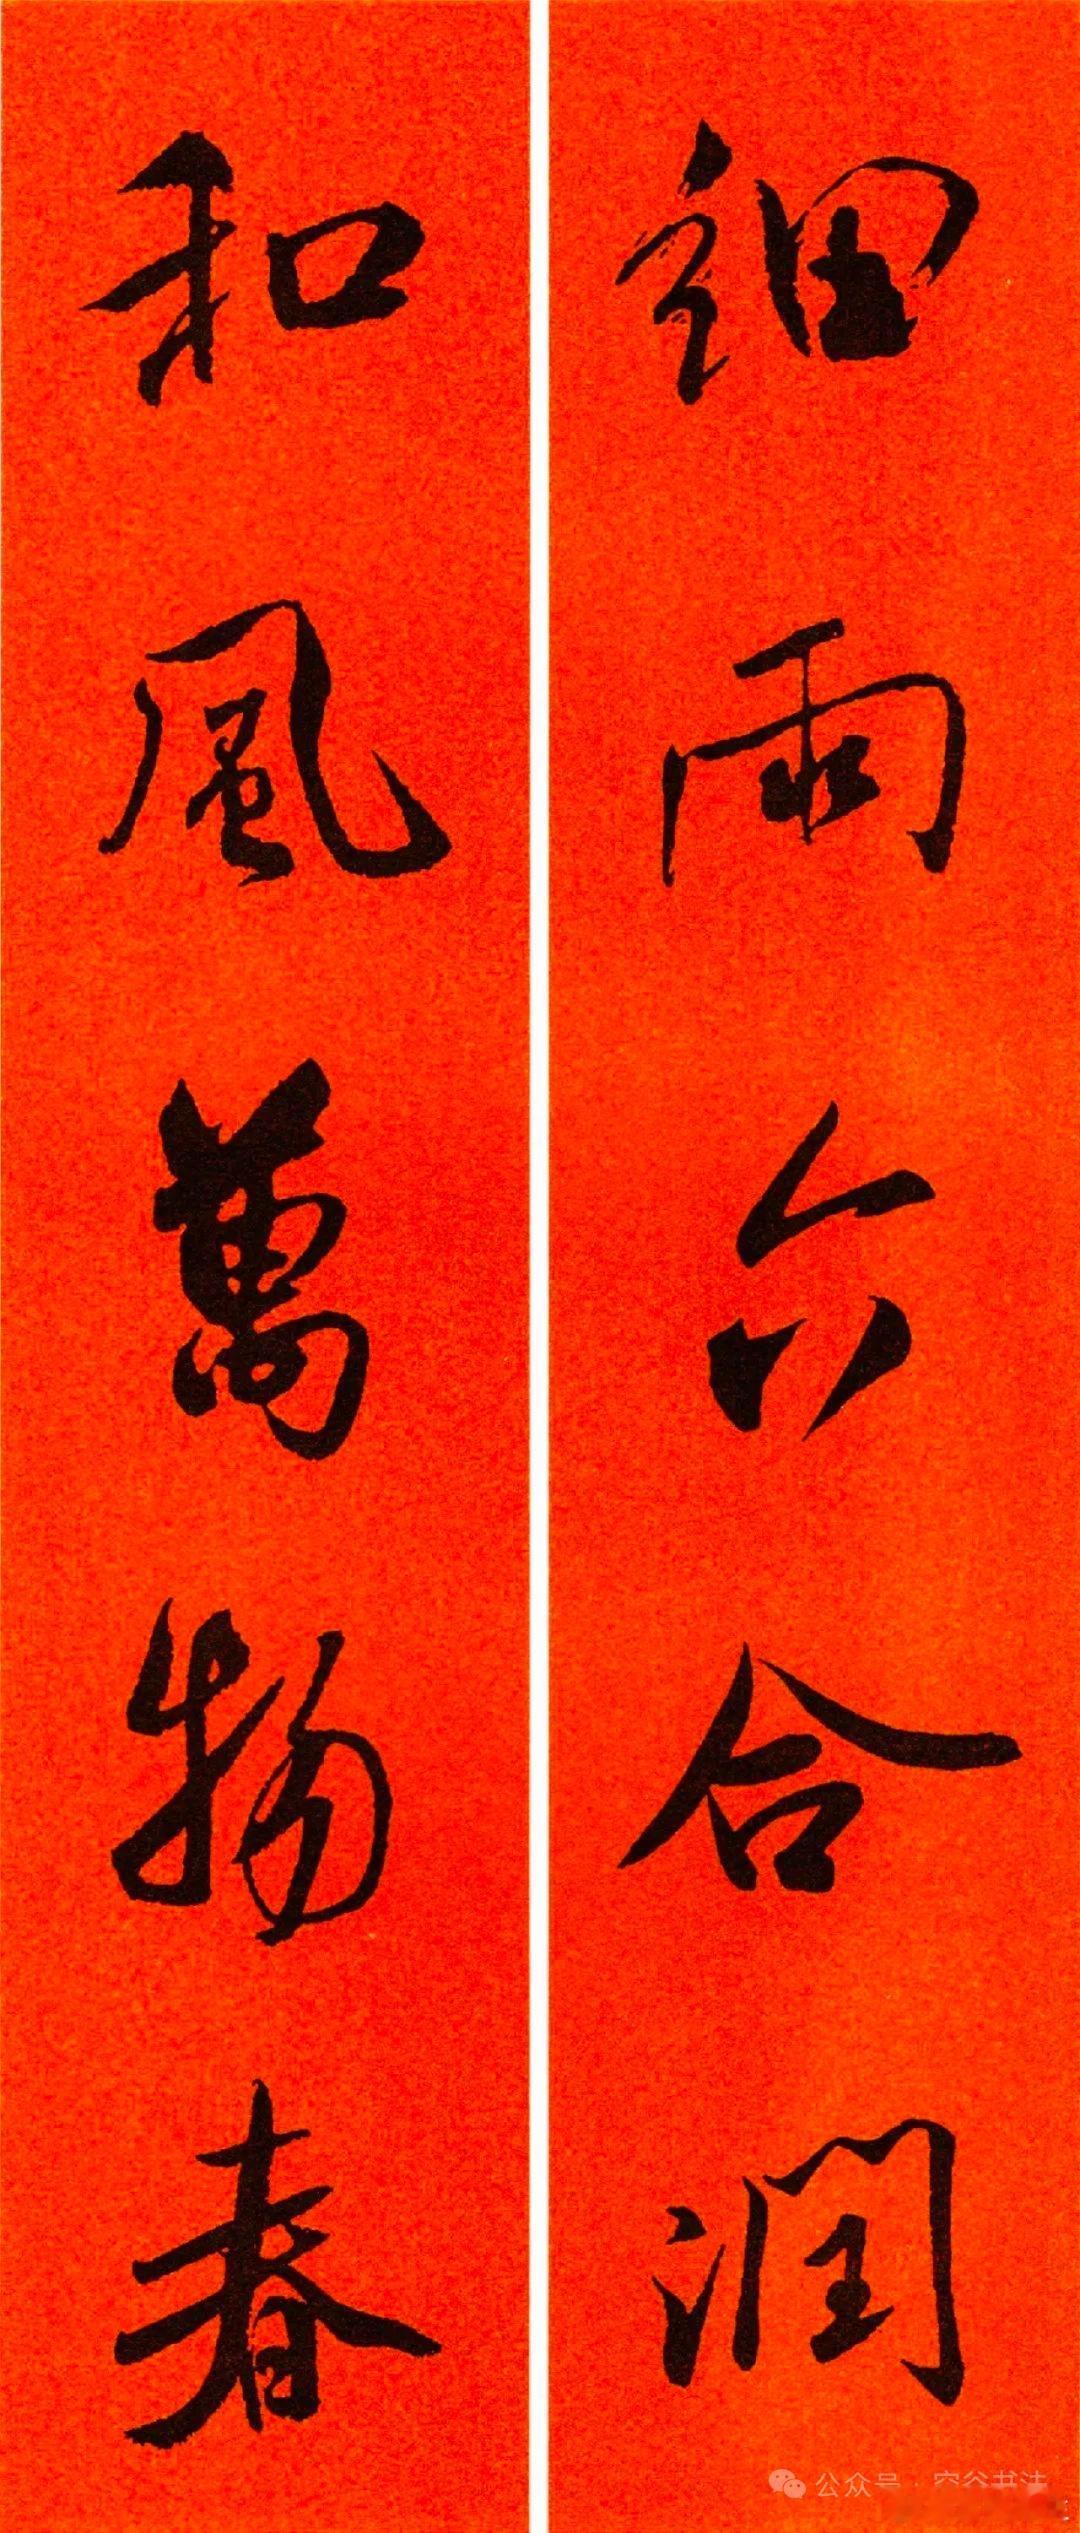 細雨六合潤
和風萬物春
公众号·空谷书法